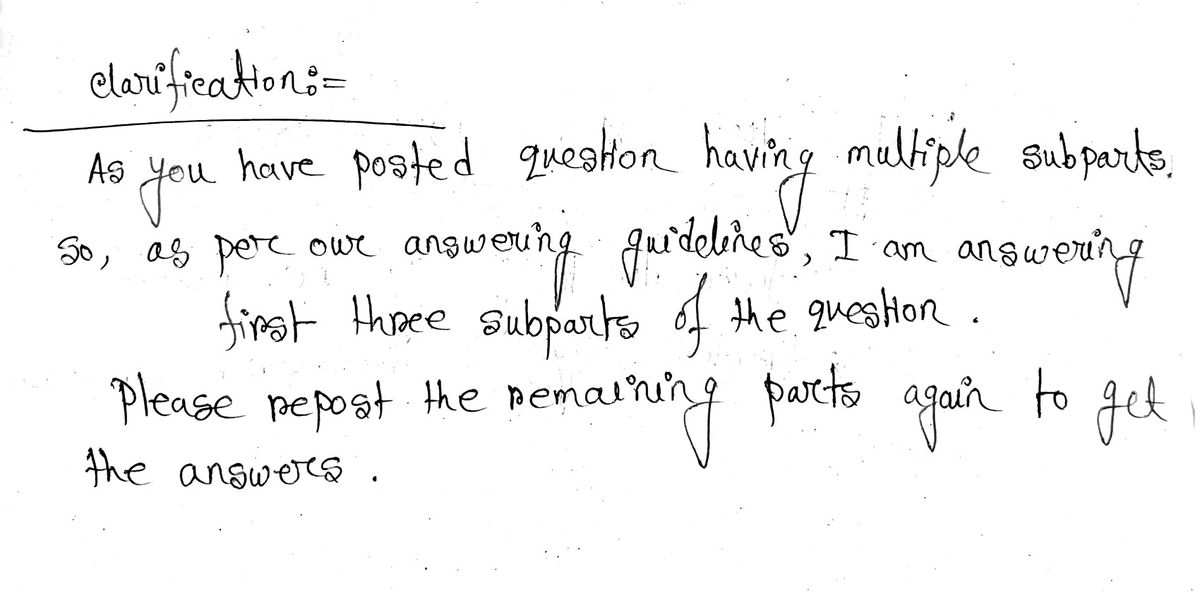 clarification:=
As you have posted question having multiple subparts.
So, as per our answering guidelines, I am answering
first three subparts of the question.
Please repost the remaining parts again to get
the answers.